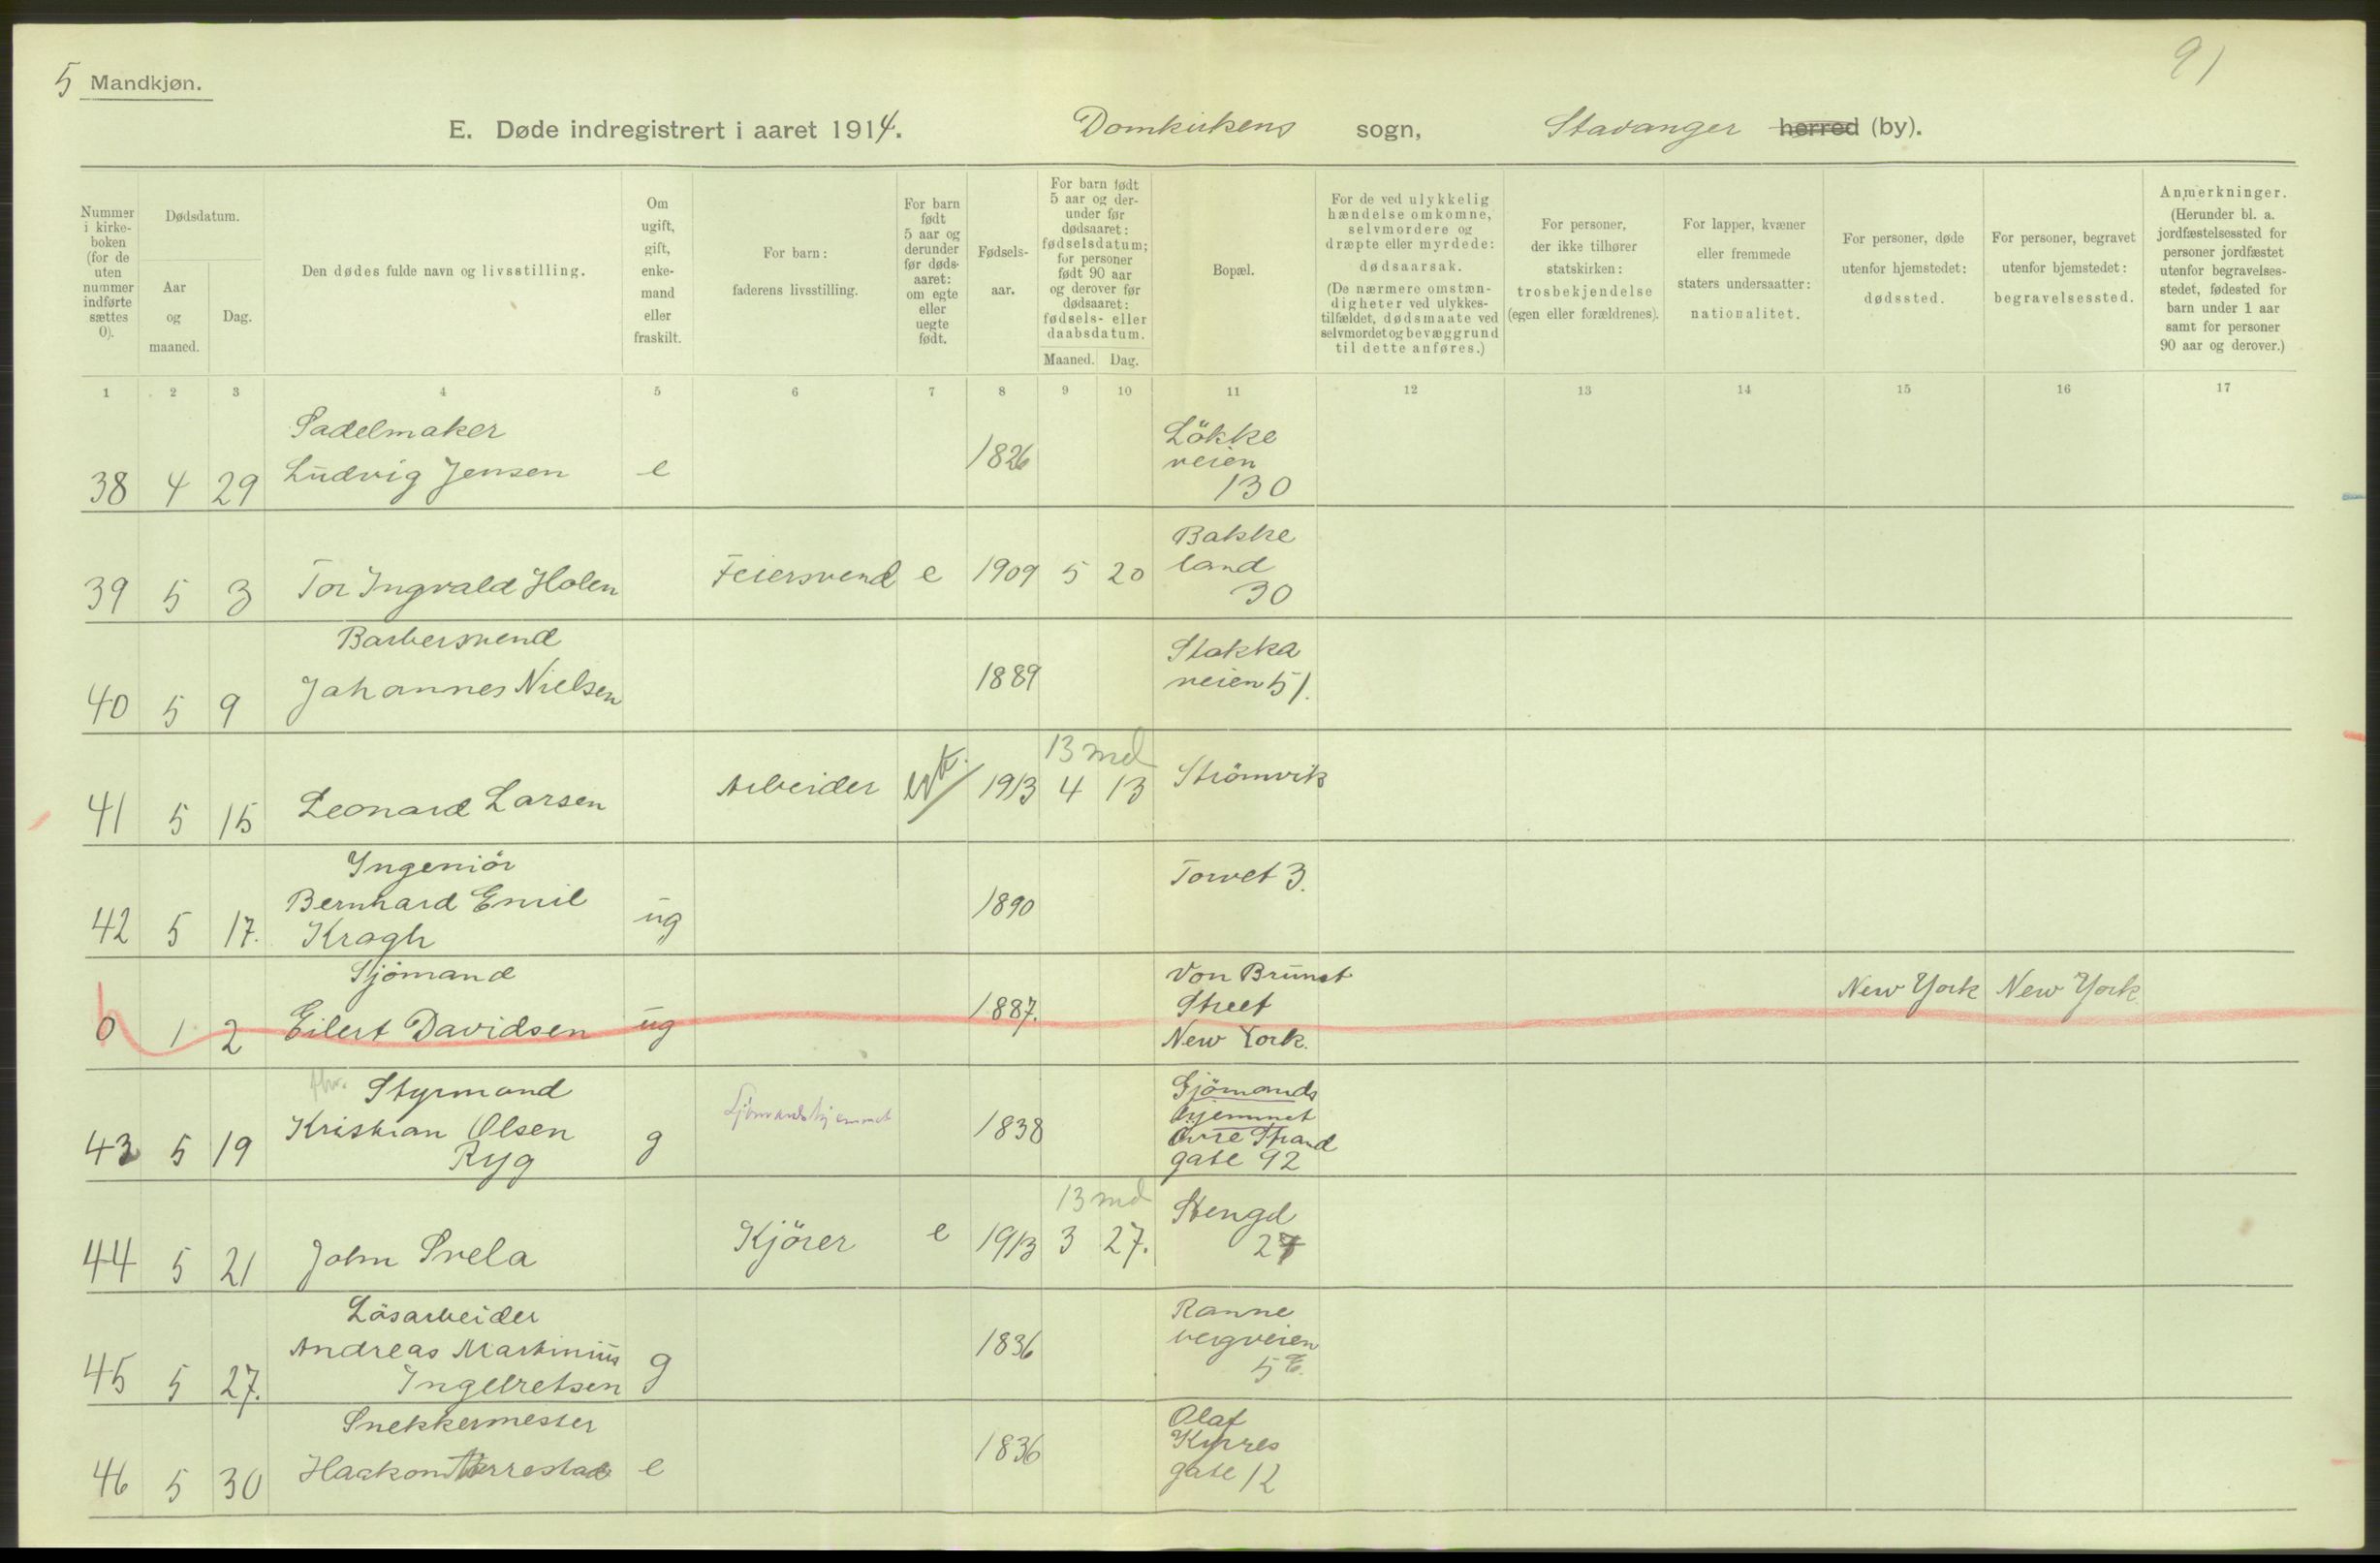 5 Mandkjøn.
91
E. Døde indregistrert i aaret 1914. Domkirkens sogn, Stavanger herred (by).
Nummer i kirke-boken (for de uten nummer indførte sættes 0).
Dødsdatum.
Aar og maaned.
Dag.
Den dødes fulde navn og livsstilling.
Om ugift, gift, enke-mand eller fraskilt.
For barn: faderens livsstilling.
For barn født 5 aar og derunder før døds-aaret: om egte eller uegte født.
Fødsels-aar.
For barn født 5 aar og der-under før dødsaaret: fødselsdatum; for personer født 90 aar og derover før dødsaaret: fødsels- eller daabsdatum.
Maaned. Dag.
Bopæl.
For de ved ulykkelig hændelse omkomne, selvmordere og dræpte eller myrdede: dødsaarsak. (De nærmere omstæn-digheter ved ulykkes-tilfældet, dødsmaate ved selvmordet og bevæggrund til dette anføres.)
For personer, der ikke tilhører statskirken: trosbekjendelse (egen eller forældrenes).
For lapper, kvæner eller fremmede staters undersaatter: nationalitet.
For personer, døde utenfor hjemstedet: dødssted.
For personer, begravet utenfor hjemstedet: begravelsessted.
Anmerkninger. (Herunder bl. a. jordfæstelsessted for personer jordfæstet utenfor begravelses-stedet, fødested for barn under 1 aar samt for personer 90 aar og derover.)
1 2 3 4 5 6 7 8 9 10 11 12 13 14 15 16 17
Sadelmaker
38 4 29 Ludvig Jensen e 1826 Lökke
veien
130
39 5 3 Tor Ingvald Holen Feiersvend e 1909 5 20 Bakke
land
30
Barbersvend
40 5 9 Johannes Nielsen 1889 Stokka
veien 51.
13 md
41 5 15 Leonard Larsen Arbeider 1913 4 13 Strömvik
Ingeniör
42 5 17. Bernhard Emil
Kragh ug 1890 Torvet 3.
Sjömand
0 1 2 Eilert Davidsen ug 1887. Von Brunst
Street
New York. New York New York
fhv. Styrmand
43 5 19 Kristian Olsen
Ryg g Sjömandshjemmet 1838 Sjömands
hjemmet
Övre Strand
gate 92
13 md
44 5 21 John Svela Kjörer e 1913 3 27. Stengd
27
Lösarbeider
45 5 27. Andreas Martinius
Ingebretsen g 1836 Ranne
bergveien
5 E.
Snekkermester
46 5 30 Haakon Norrestad e 1836 Olaf
Kyrres
gate 12